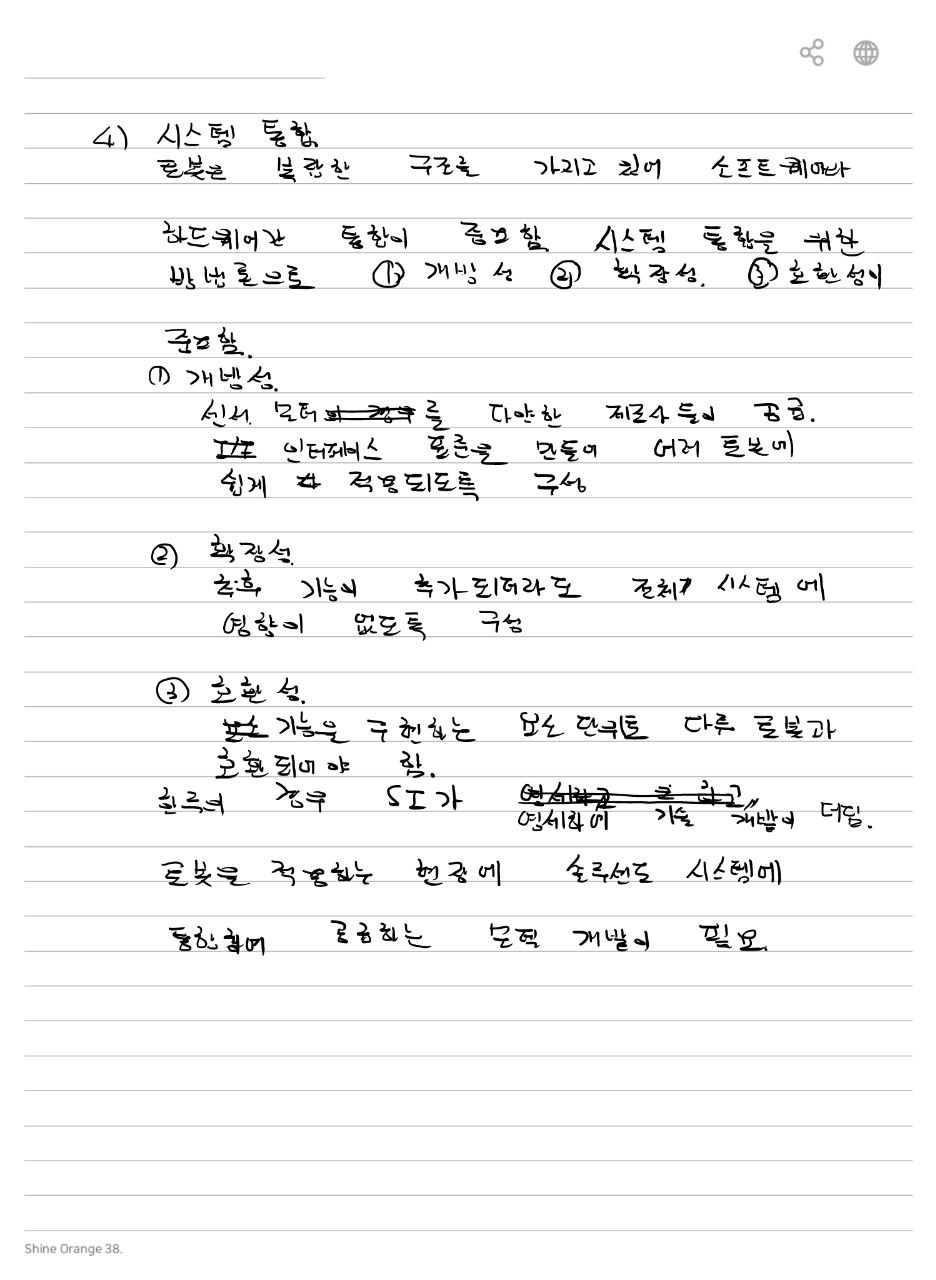 4) 시스템 통합.
로봇은 복잡한 구조를 가지고 있어 소프트웨어나
하드웨어간 통합이 중요함. 시스템 통합을 위한
방법론으로 ① 개방성 ② 확장성. ③ 호환성이
중요함.
① 개방성.
센서, 모터를 다양한 제조사들이 공급.
인터페이스 표준을 만들어 여러 로봇에
쉽게 적용되도록 구성
② 확장성.
추후 기능이 추가되더라도 전체 시스템에
영향이 없도록 구성
③ 호환성.
기능을 구현하는 요소 단위로 다른 로봇과
호환되어야 함.
한국의 경우 SI가 영세하여 기술 개발이 더딤.
로봇을 적용하는 현장에 솔루션도 시스템에
통합하여 공급하는 모델 개발이 필요.
Shine Orange 38.